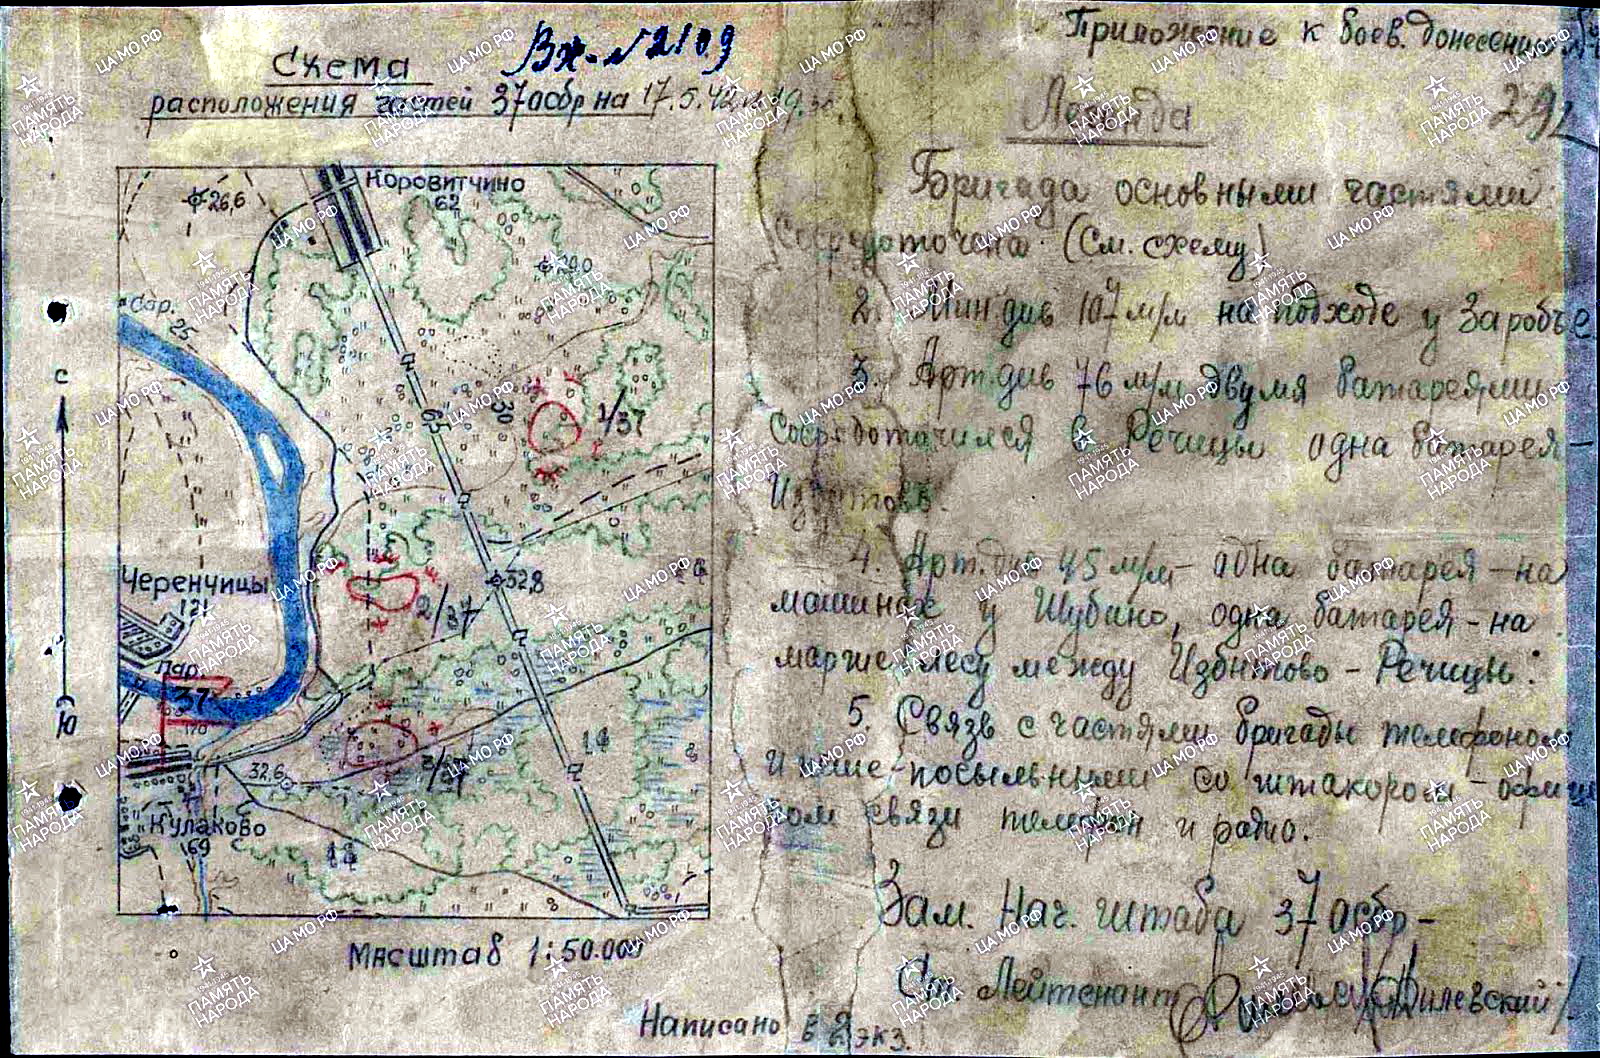 Схема
Вх-№2109
расположения частей 37 осбр на 17.5.42
Коровитчино
62
26,6
бар.
25
65
30
1/37
Черенчицы
121
32,8
2/37
пар.
37
170
32,6
3/37
Кулаково
69
С
Ю
Масштаб 1:50.000
Написано в 2 экз.
Приложение к боев. донесению
292
Легенда
Бригада основными частями
Сосредоточена (См. схему)
2. Мин.див 107 м/м на подходе у Заробье
3. Арт.див 76 м/м двумя батареями
Сосредоточился в Речицы одна батарея –
Избитово.
4. Арт.див 45 м/м – одна батарея – на
машинах у Шубино, одна батарея – на
марше лесу между Избитово – Речицы.
5. Связь с частями бригады телефоном
и пеше-посыльными со штакором – офице
ром связи телефон и радио.
Зам. Нач. штаба 37 осбр –
Ст. Лейтенант /Дилевский/
ЦА МО РФ
ПАМЯТЬ НАРОДА